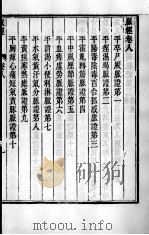 脉經卷八
平卒尸厥脉證第一
平痙濕暍脉證第二
平陽毒陰毒百合狐惑脉證第三
平霍亂轉筋脉證第四
平中風歷節脉證第五
平血痹虛勞脉證第六
平消渴小便利淋脉證第七
平水氣黃汗氣分脉證第八
平黃疸寒熱瘧脉證第九
平胸痹心痛短氣賁豚脉證第十